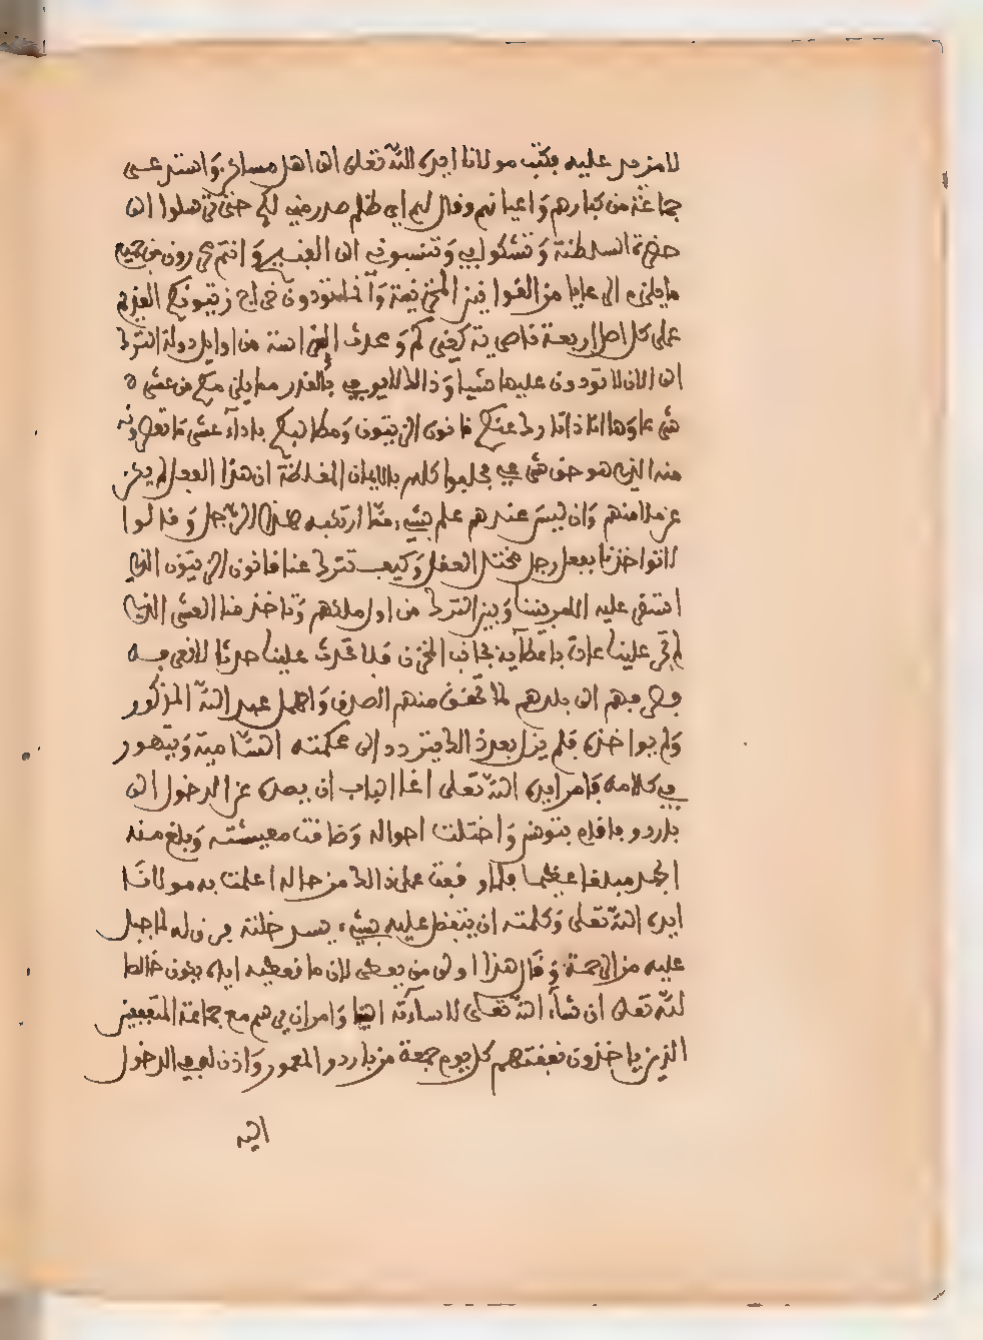 لا مزيد عليه فكتب مولانا ايده الله تعلى الى اهل مساكن واستدعى
جماعة من كبارهم واعيانهم وقال لهم اي ظلم صدر مني لكم حتى ترسلوا الى
حضرة السلطنة وتشكوا بي وتنسبوني الى وانتم محررون من جميع
ما يلزم الرعايا من القوانين المخزنية وانما تودون خراج زيتونكم
على كل اصل اربعة نواصري ية كغيركم وعدت من اوايل دولة الترك
الى الان لا تودون عليها شيئا وذلك لا يوفي بالقدر مما يلزمكم من عشر
شيء وها انا ذا تارك عنكم قانون الزيتون ومطالبكم باداء عشر ما تعصرونه
منه الذي هو حق شرعي فحلبوا كلهم بالايمان المغلظة ان هذا الفعل لم يكن
عن ملا منهم وان ليس عندهم علم بشيء مما ارتكبه هذا الرجل وقالوا
لا تواخذنا بفعل رجل مختل العقل وكيف تترك عنا قانون الزيتون الذي
استقر عليه الامر بيننا وبين الترك من اول ملكهم وتاخذ منا العشر الذي
لم تجر علينا عادة باعطايه لجانب المخزن فلا تحدث علينا حدثا لا نعرفه
فصرفهم الى بلدهم لما تحقق منهم الصدق واهمل عبد الله المذكور
ولم يواخذه فلم يزل بعد ذلك يتردد الى محكمته السامية ويتهور
في كلامه فامر ايده الله تعلى اغا الباب ان يصده عن الدخول الى
باردو فاقام بتونس واختلت احواله وضاقت معيشته وبلغ منه
الجهد مبلغا عظيما فلما وقفت على ذلك من حاله اعلمت به مولانا
ايده الله تعلى وكلمته ان يتفضل عليه بشيء يسد خلته فرق له لما جبل
عليه من الرحمة وقال هذا اولى من يعطى لان ما نعطيه اياه يكون خالصا
لله تعلى ان شاء الله تعلى لاساءته الينا وامر ان يرسم مع جماعة المتفقهين
الذين ياخذون نفقتهم كل يوم جمعة من باردو المعمور واذن له في الدخول
اليه